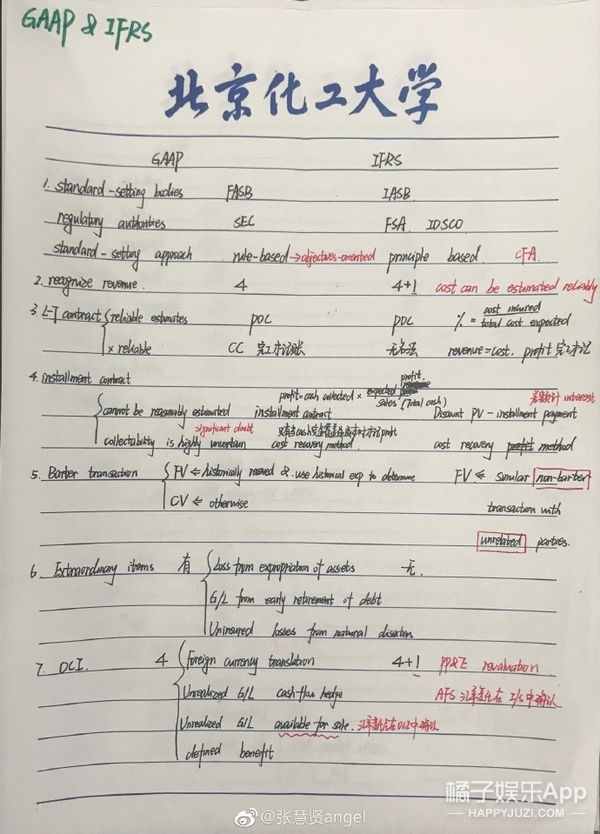 GAAP & IFRS
北京化工大学
GAAP IFRS
1. standard-setting bodies FASB IASB
regulatory authorities SEC FSA IOSCO
standard-setting approach rule-based → objectives-oriented principle based CFA
2. recognize revenue 4 4+1 cost can be estimated reliably
3. L-T contract reliable estimates POC POC % = cost incurred / total cost expected
× reliable CC 完工才记账 revenue = cost. profit 完工才记
4. installment contract profit = cash collected × expected profit / sales (Total cash)
cannot be reasonably estimated installment contract Discount PV - installment payment interest
significant doubt
collectability is highly uncertain cost recovery method cost recovery method
5. Barter transaction FV ⇐ historically received & use historical exp to determine FV ⇐ similar non-barter
CV ⇐ otherwise transaction with
unrelated parties.
6. Extraordinary items 有 Loss from expropriation of assets 无.
G/L from early retirement of debt
Uninsured losses from natural disasters
7. OCI. 4 Foreign currency translation 4+1 PP&E revaluation
Unrealized G/L cash flow hedge AFS 汇率变化在 I/S中确认
Unrealized G/L available for sale. 汇率变化在OCI中确认
defined benefit
@张慧贤angel
橘子娱乐App
HAPPYJUZI.COM